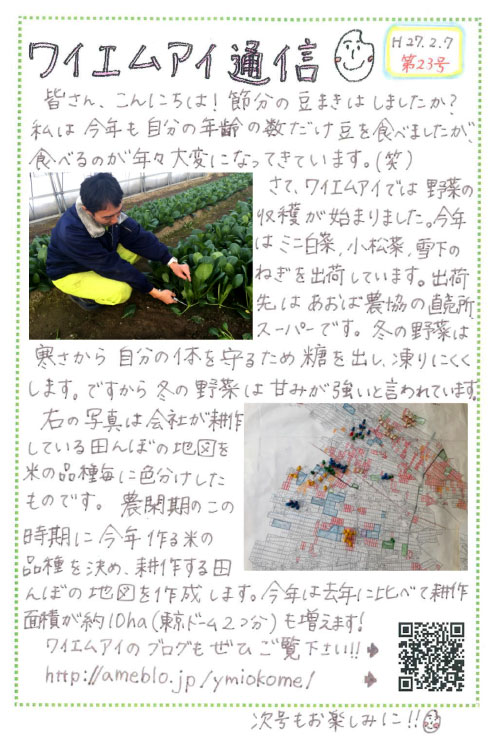 ワイエムアイ通信
H27.2.7
第23号
皆さん、こんにちは!節分の豆まきはしましたか?
私は今年も自分の年齢の数だけ豆を食べましたが、
食べるのが年々大変になってきています。(笑)
さて、ワイエムアイでは野菜の
収穫が始まりました。今年
はミニ白菜、小松菜、雪下の
ねぎを出荷しています。出荷
先はあおば農協の直売所
スーパーです。冬の野菜は
寒さから自分の体を守るため糖を出し、凍りにくく
します。ですから冬の野菜は甘みが強いと言われています。
右の写真は会社が耕作
している田んぼの地図を
米の品種毎に色分けした
ものです。農閑期のこの
時期に今年作る米の
品種を決め、耕作する田
んぼの地図を作成します。今年は去年に比べて耕作
面積が約10ha(東京ドーム2つ分)も増えます!
ワイエムアイのブログもぜひご覧下さい!!→
http://ameblo.jp/ymiokome/ →
次号もお楽しみに!!